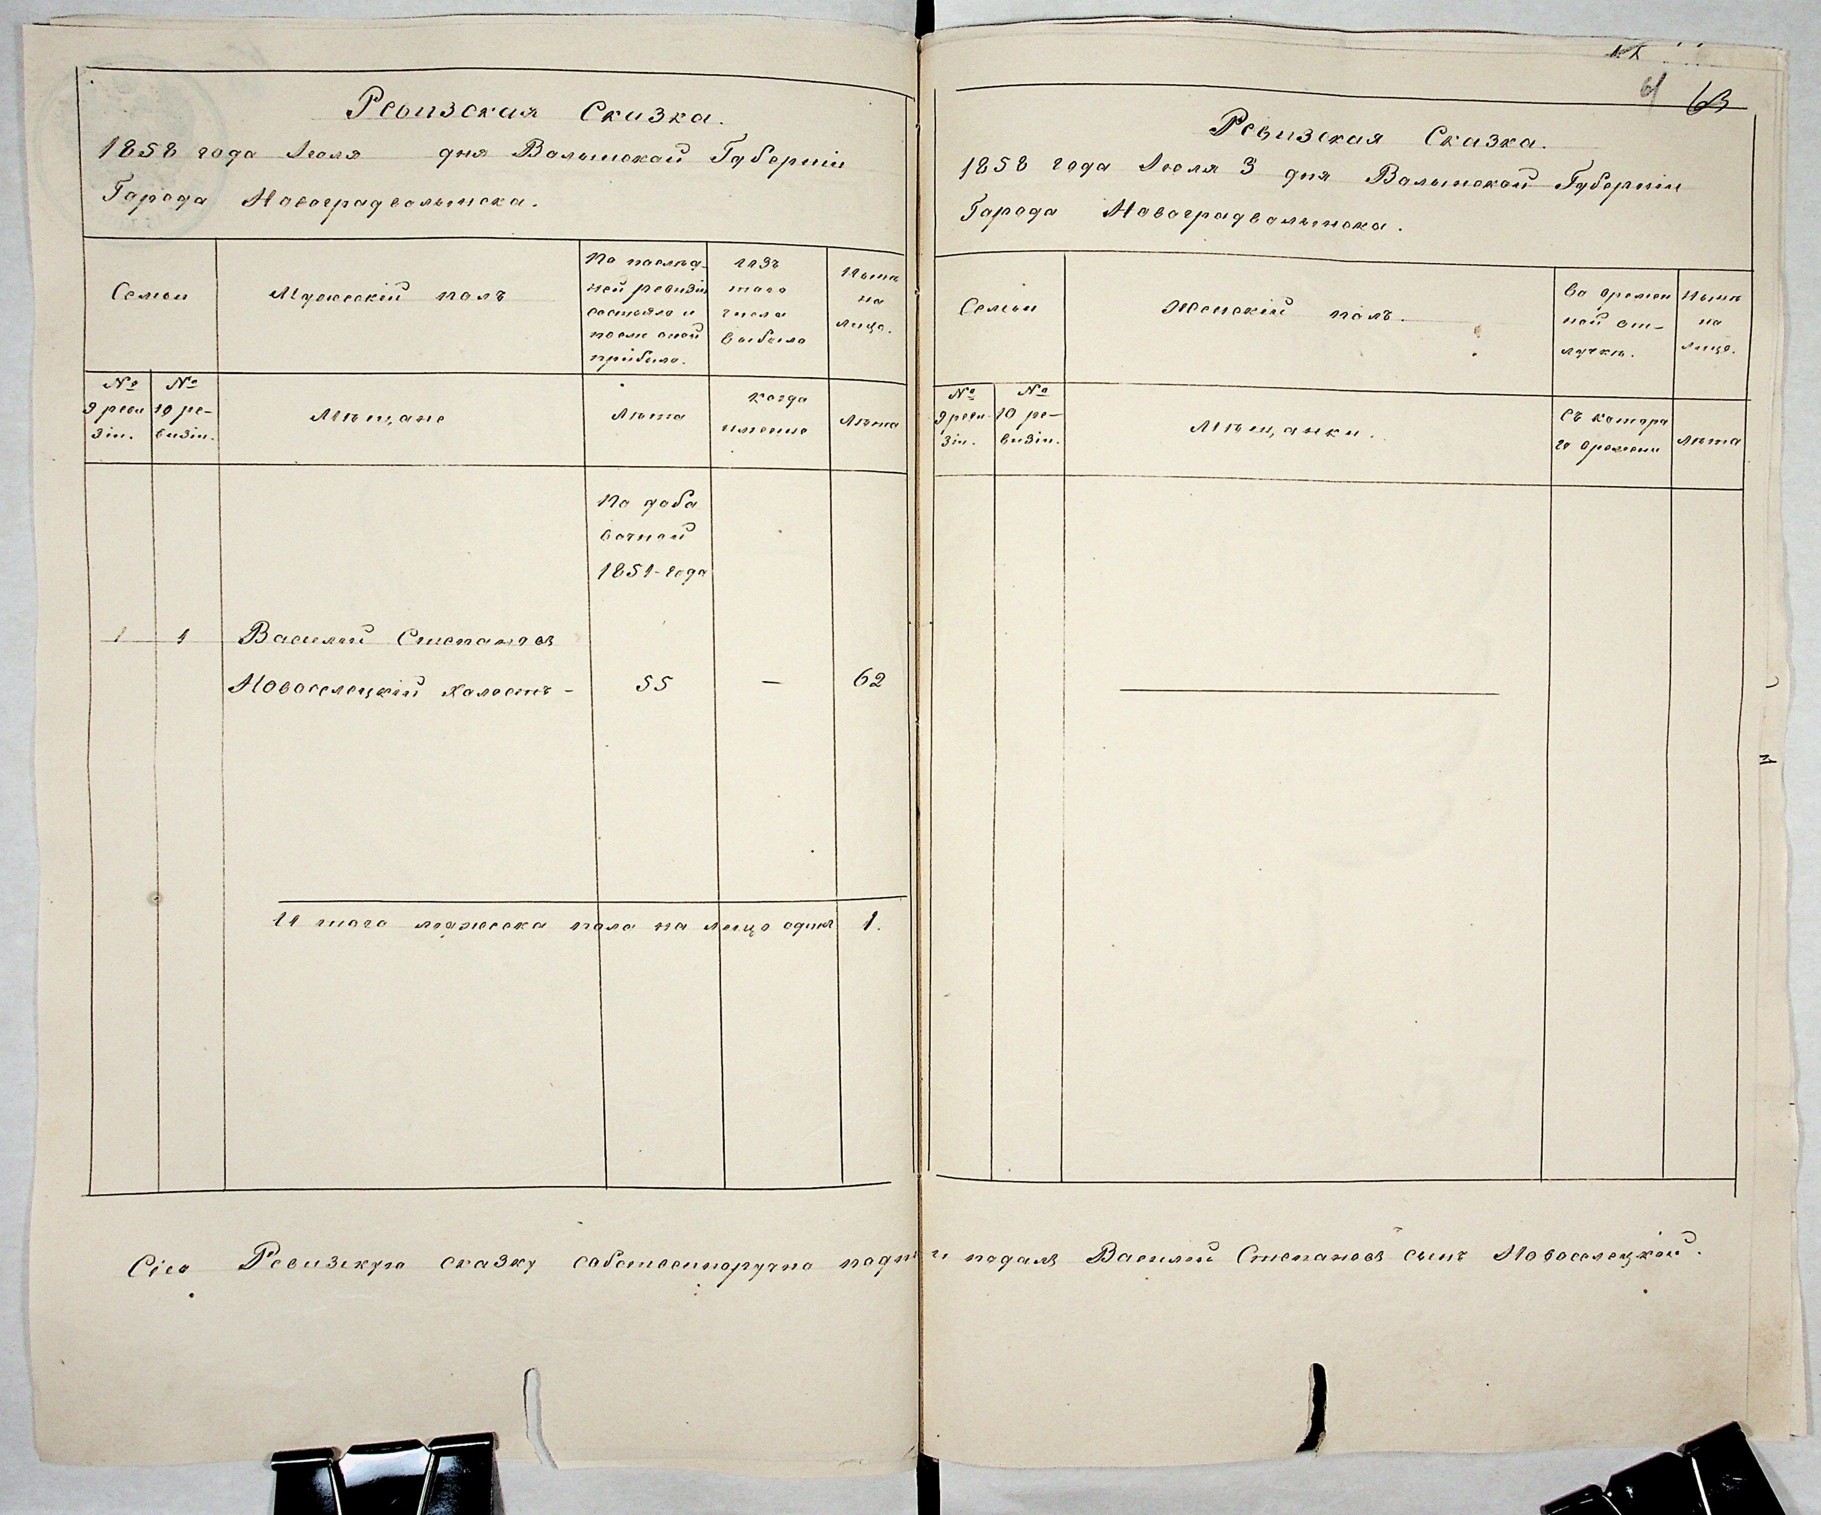 Ревизская Сказка.
1858 года Июля дня Волынской Губерніи
Города Новоградволынска.
Семьи
Мужескій полъ
По послѣд-
ней ревизіи
состояло и
послѣ оной
прибыло.
изъ
того
числа
выбыло
Нынѣ
на
лицо.
№
9 реви
зіи.
№
10 ре-
визіи.
Мѣщане
Лѣта
когда
именно
Лѣта
По доба
вочной
1851-года
1 1 Василій Степановъ
Новоселецкій холостъ - 55 — 62
И того мужеска пола на лицо одинъ 1.
61 63
Ревизская Сказка.
1858 года Июля 3 дня Волынской Губерніи
Города Новоградволынска.
Семьи
Женскій полъ.
Во времен
ной от-
лучкѣ.
Нынѣ
на
лицо.
№
9 реви-
зіи.
№
10 ре-
визіи.
Мѣщанки.
Съ котора
го времени
Лѣта
Сію Ревизкую сказку собственноручно и подалъ Василій Степановъ сынъ Новоселецкій.